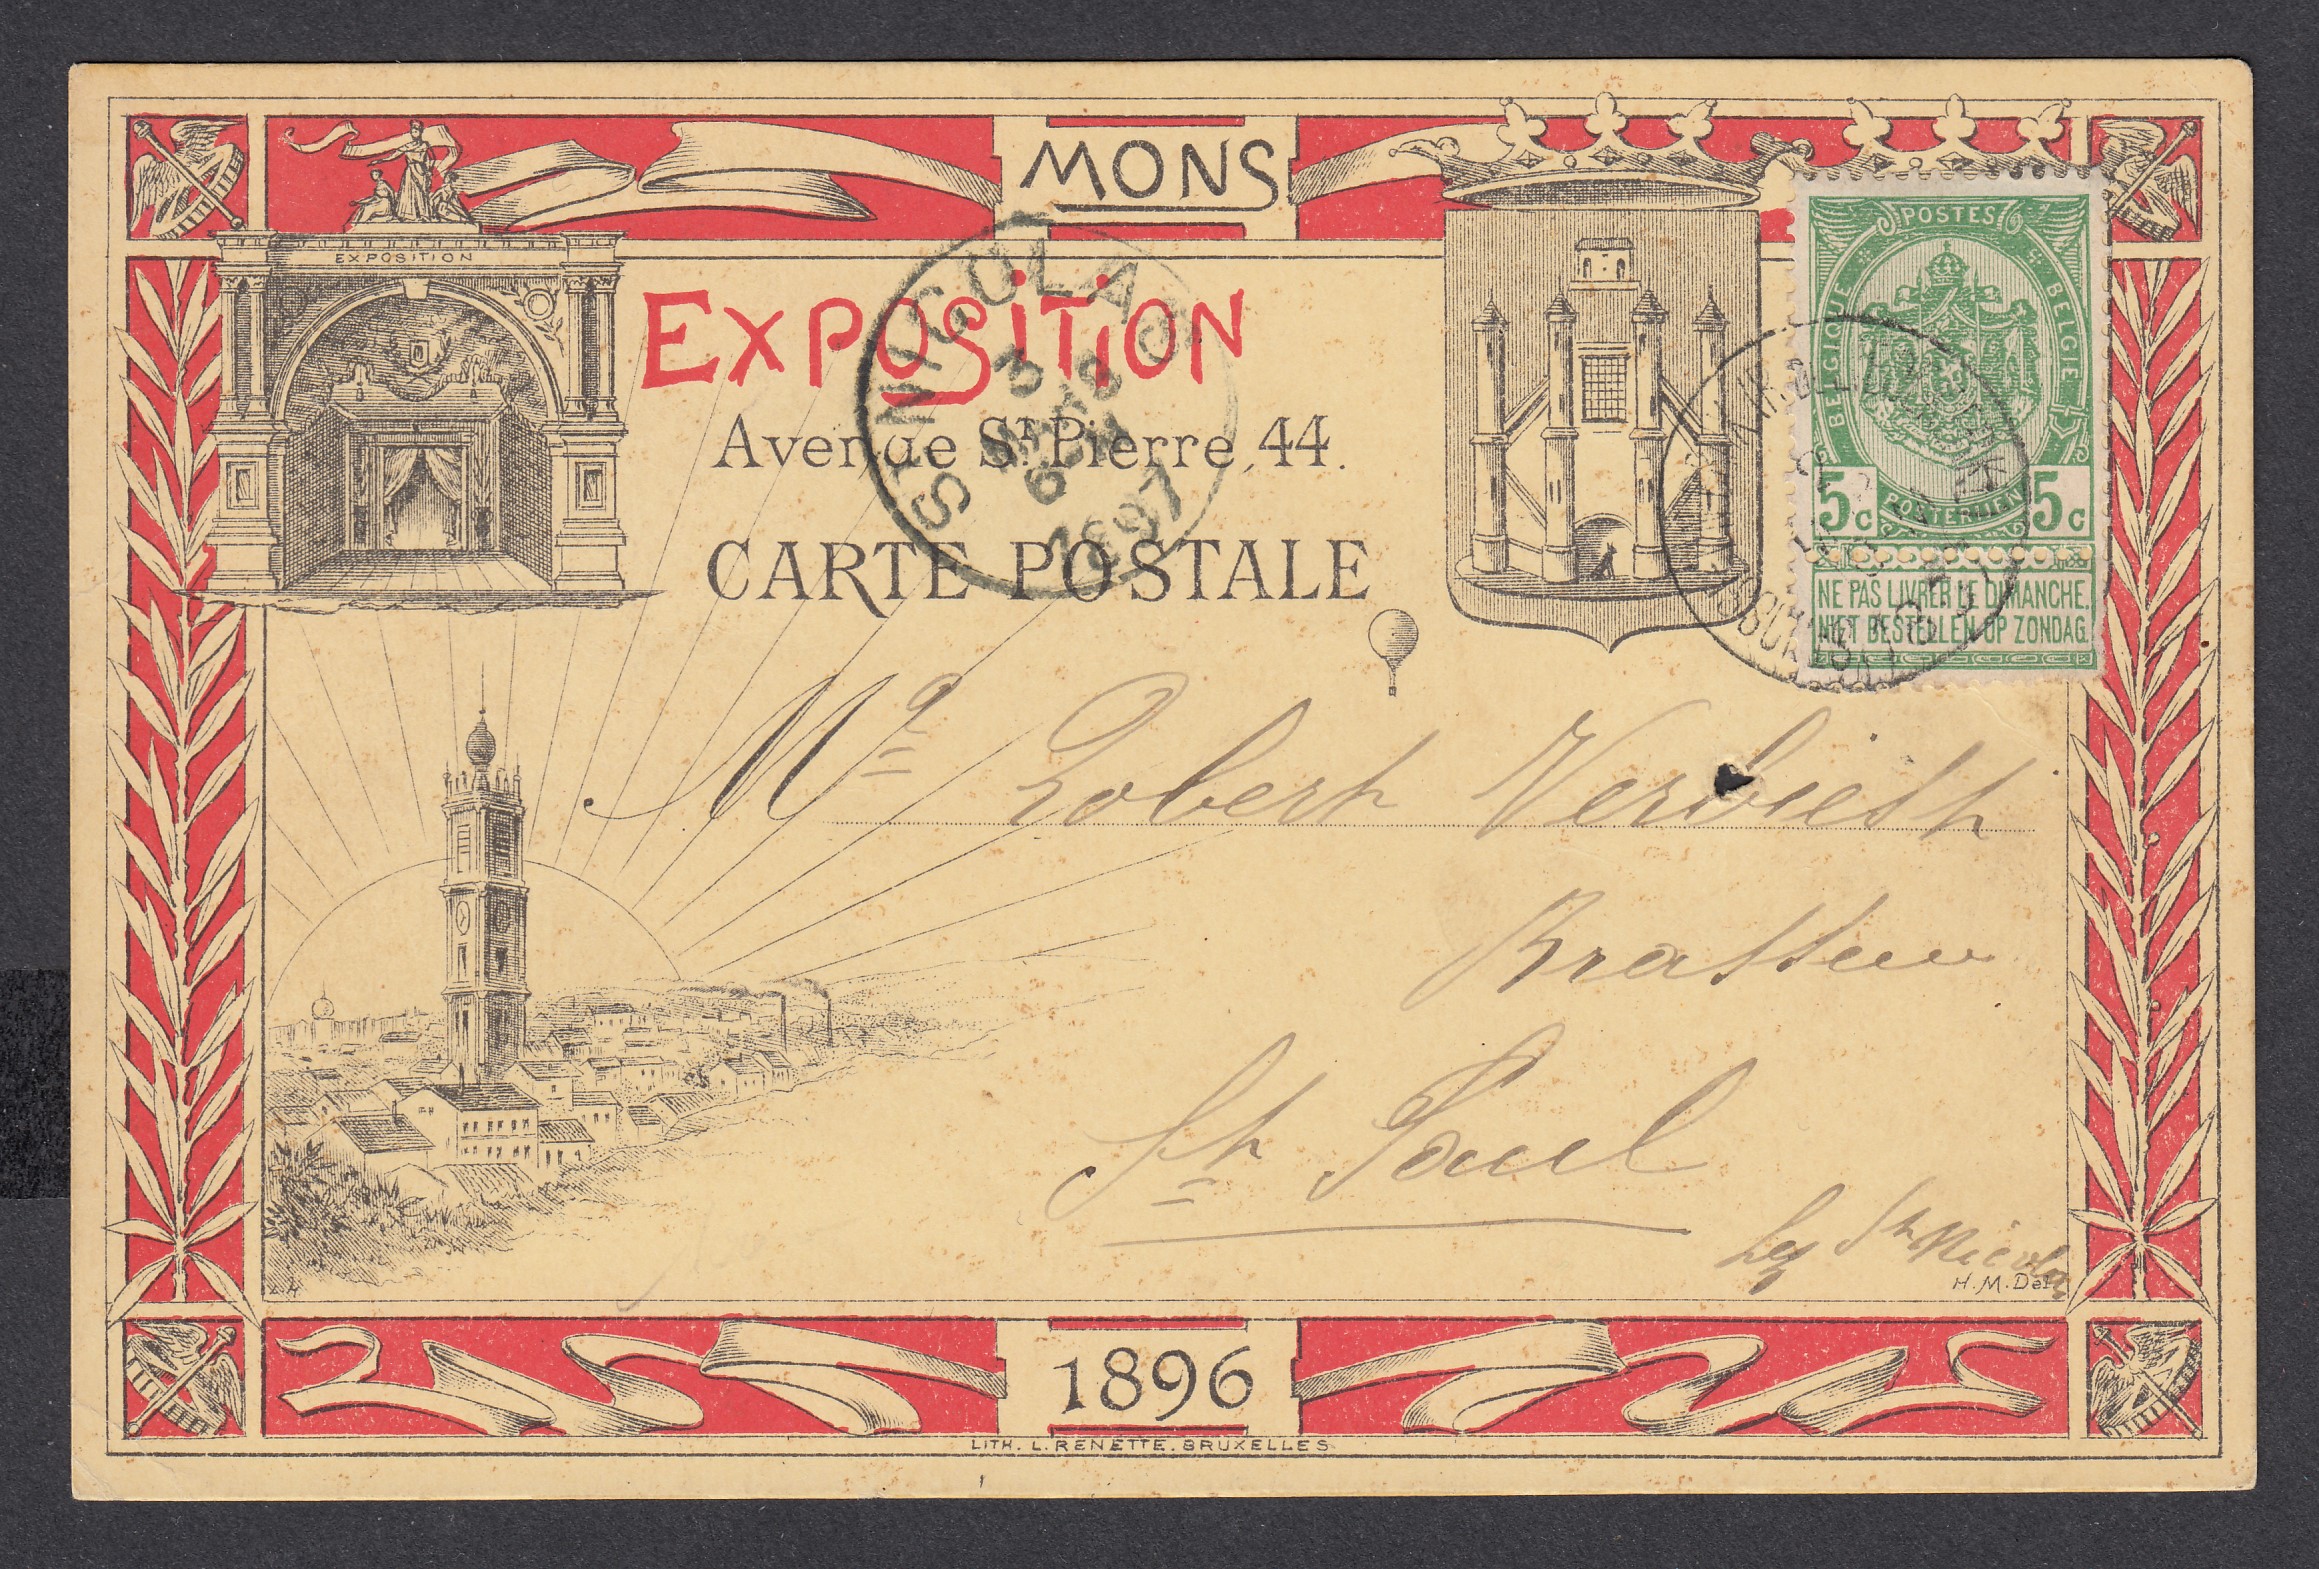 MONS
EXPOSITION
EXPOSITION
Avenue St. Pierre, 44.
CARTE POSTALE
ST NICOLAS
3
MARS
6
1897
POSTES
BELGIQUE
BELGIE
5c POSTERIJEN 5c
NE PAS LIVRER LE DIMANCHE.
NIET BESTELLEN OP ZONDAG.
Mr Robert Verbiest
Brasseur
St Paul
St Nicolas
H.M. Del.
1896
LITH. L. RENETTE. BRUXELLES